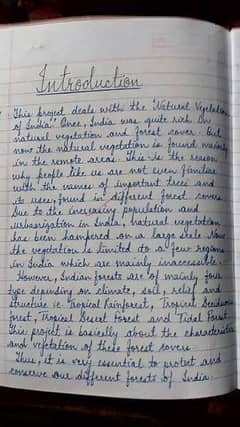 Introduction
This project deals with the "Natural Vegetation
of India". Once, India was quite rich in
natural vegetation and forest cover. But
now the natural vegetation is found mainly
in the remote areas. This is the reason
why people like us are not even familiar
with the names of important trees and
its uses, found in different forest covers.
Due to the increasing population and
urbanization in India, natural vegetation
has been hampered on a large scale. Now
the vegetation is limited to a few regions
in India which are mainly inaccessible.
However, Indian forests are of mainly four
type depending on climate, soil, relief and
structure ie Tropical Rainforest, Tropical Deciduous
forest, Tropical Desert Forest and Tidal Forest.
This project is basically about the characteristics
and vefetation of these forest covers.
Thus, it is very essential to protect and
conserve our different forests of India.